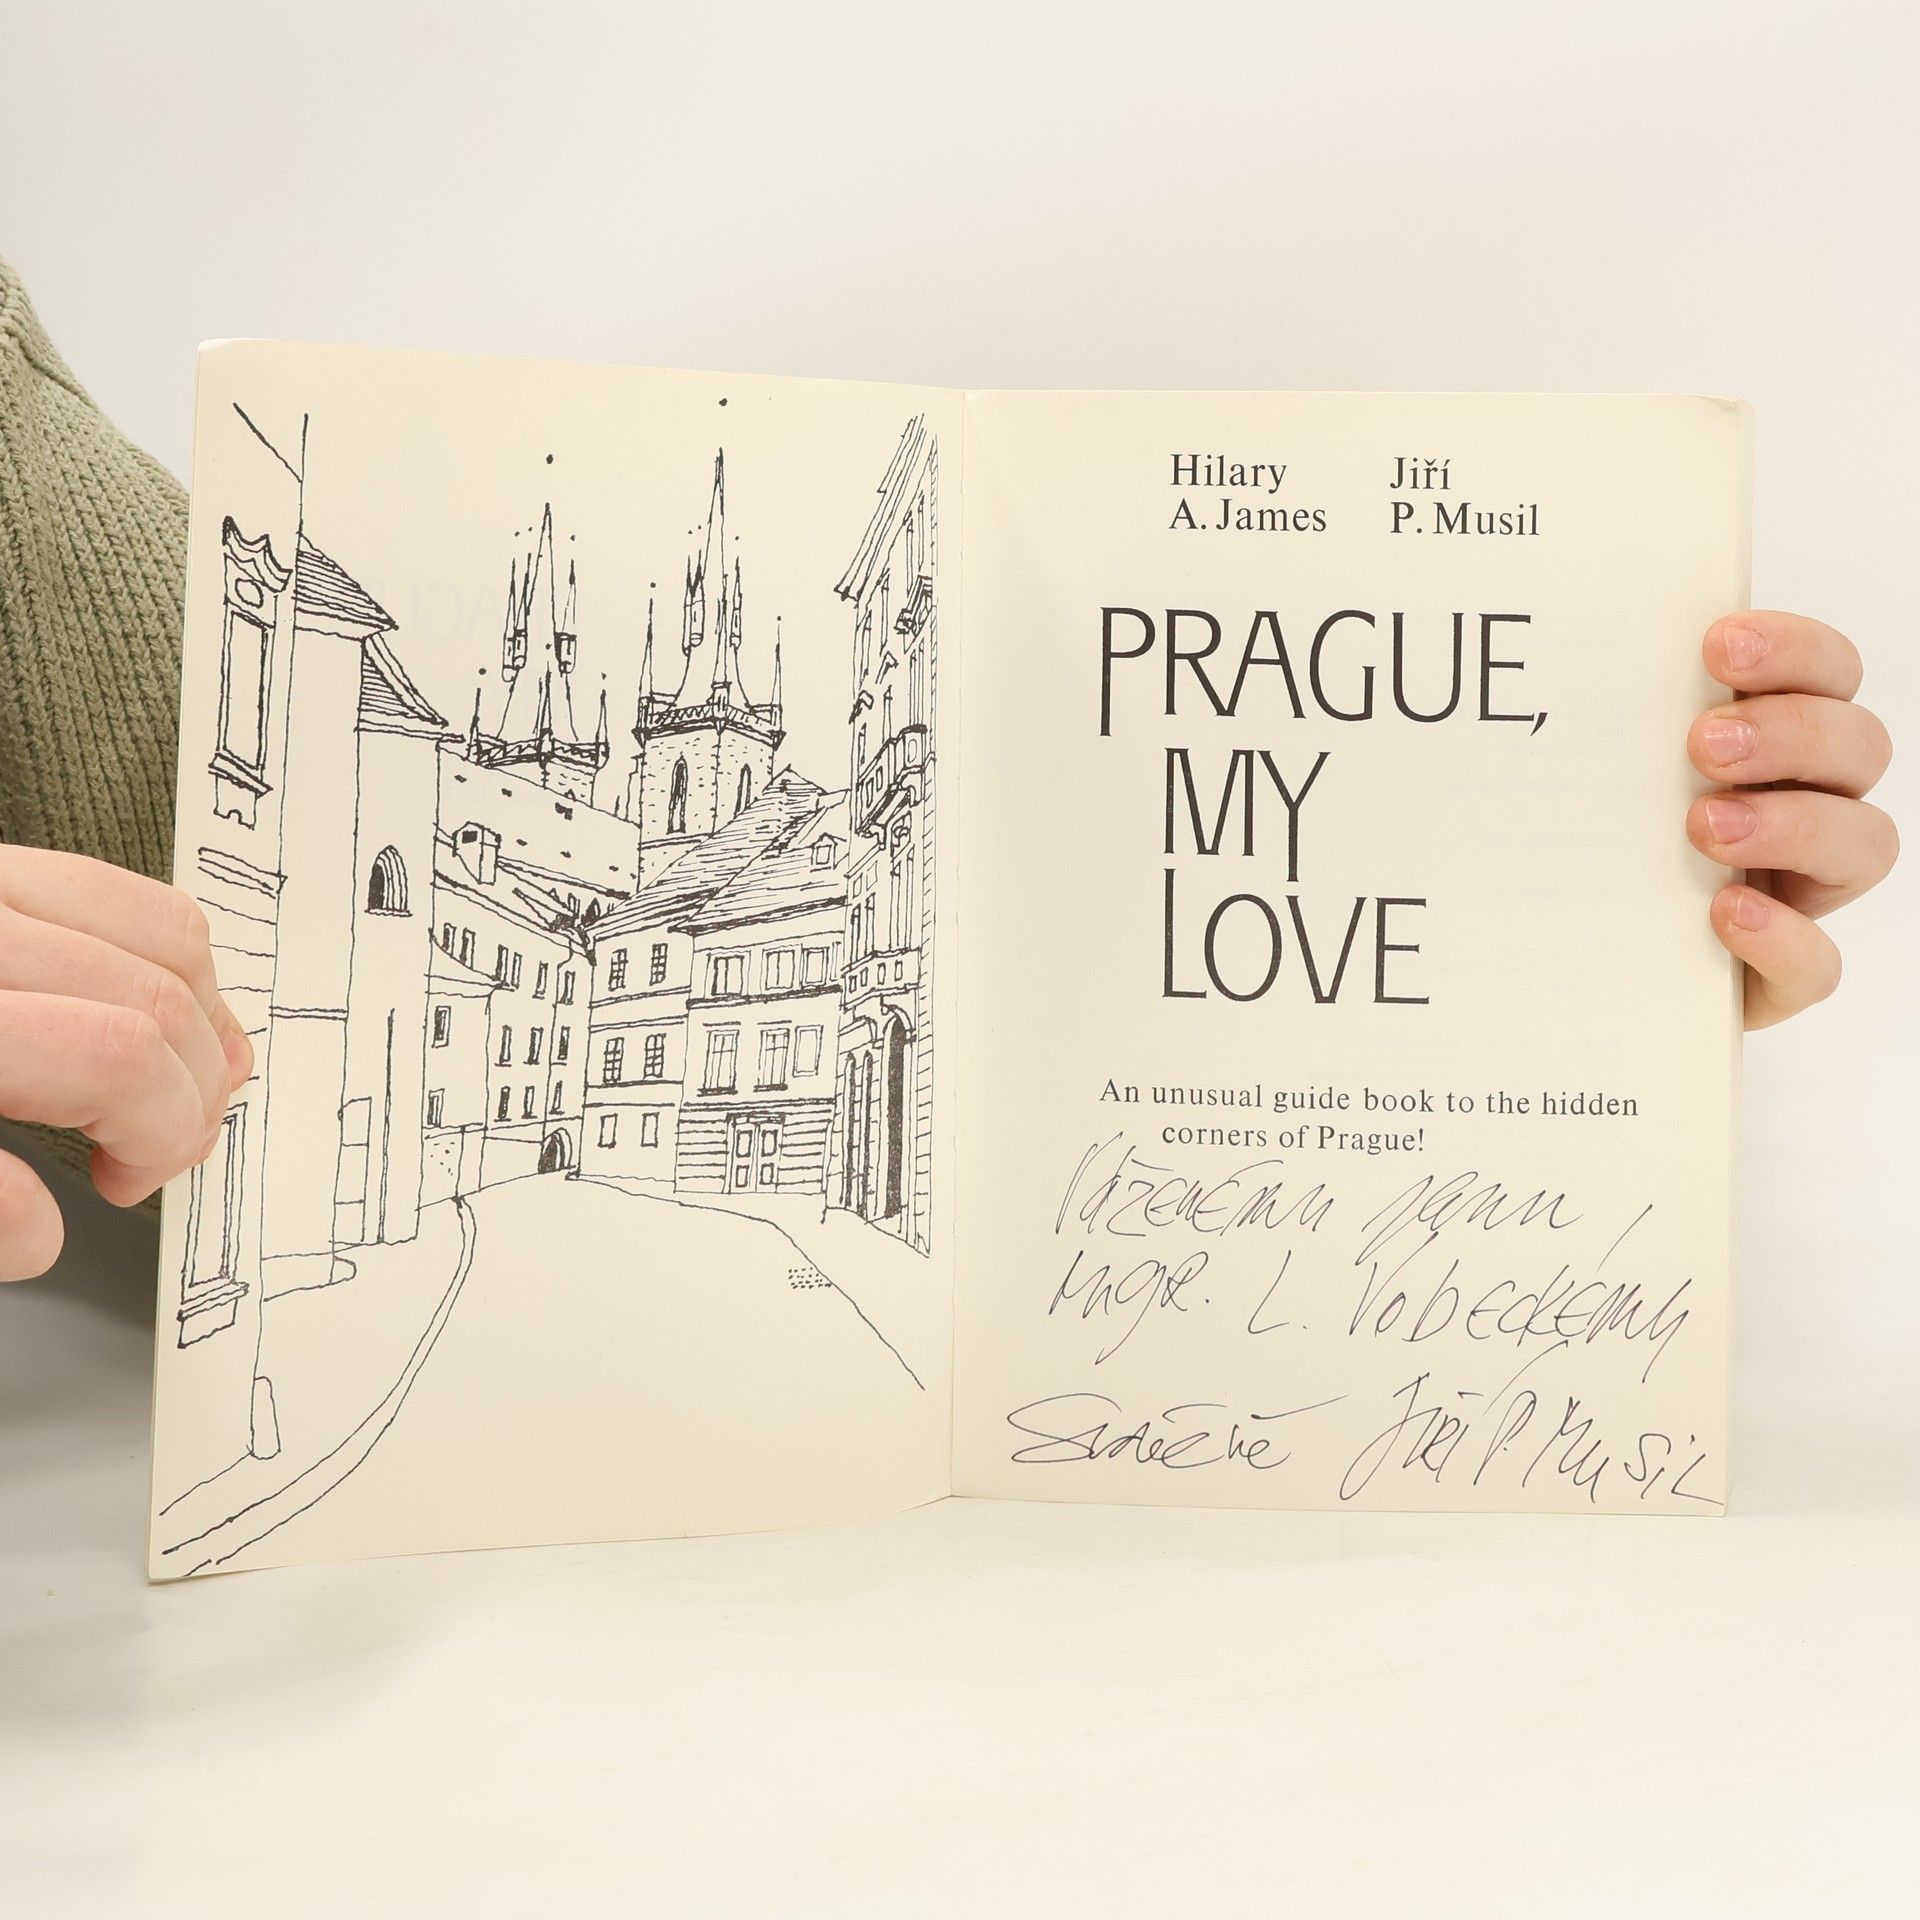 Hilary Jiří
A. James P. Musil
PRAGUE,
MY
LOVE
An unusual guide book to the hidden
corners of Prague!
Váženému panu,
Mgr. L. Vobeckému
Srdečně Jiří P. Musil